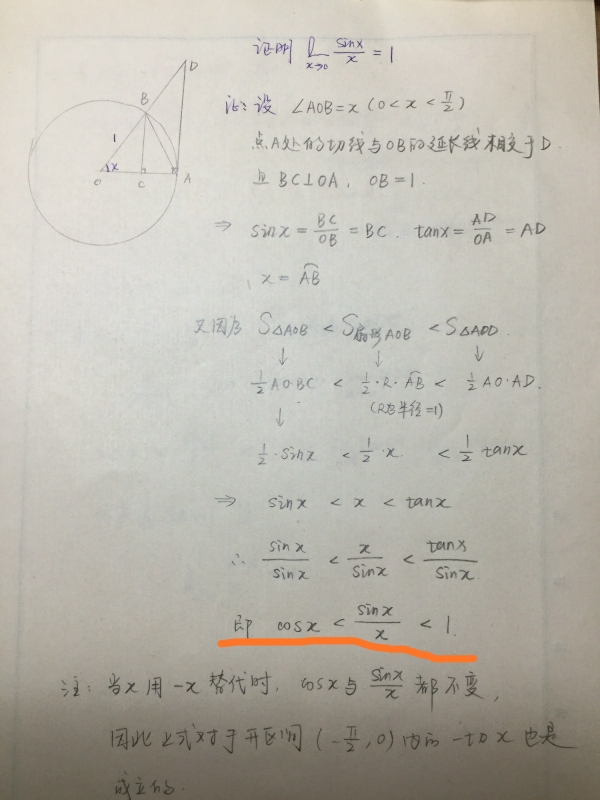 证明 lim x→0 sinx/x = 1
证: 设 ∠AOB=x (0<x<π/2)
点A处的切线与OB的延长线相交于D.
且 BC⊥OA, OB=1.
⇒ sinx = BC/OB = BC. tanx = AD/OA = AD
x = AB⌒
又因为 S△AOB < S扇形AOB < S△AOD.
↓ ↓ ↓
1/2 AO·BC < 1/2·R·AB⌒ < 1/2 AO·AD.
(R为半径=1)
↓
1/2·sinx < 1/2·x. < 1/2 tanx
⇒ sinx < x < tanx
∴ sinx/sinx < x/sinx < tanx/sinx
即 cosx < sinx/x < 1.
注: 当x用-x替代时, cosx与 sinx/x 都不变,
因此上式对于开区间 (-π/2, 0) 内的一切x也是
成立的.
D
B
1
x
O
C
A